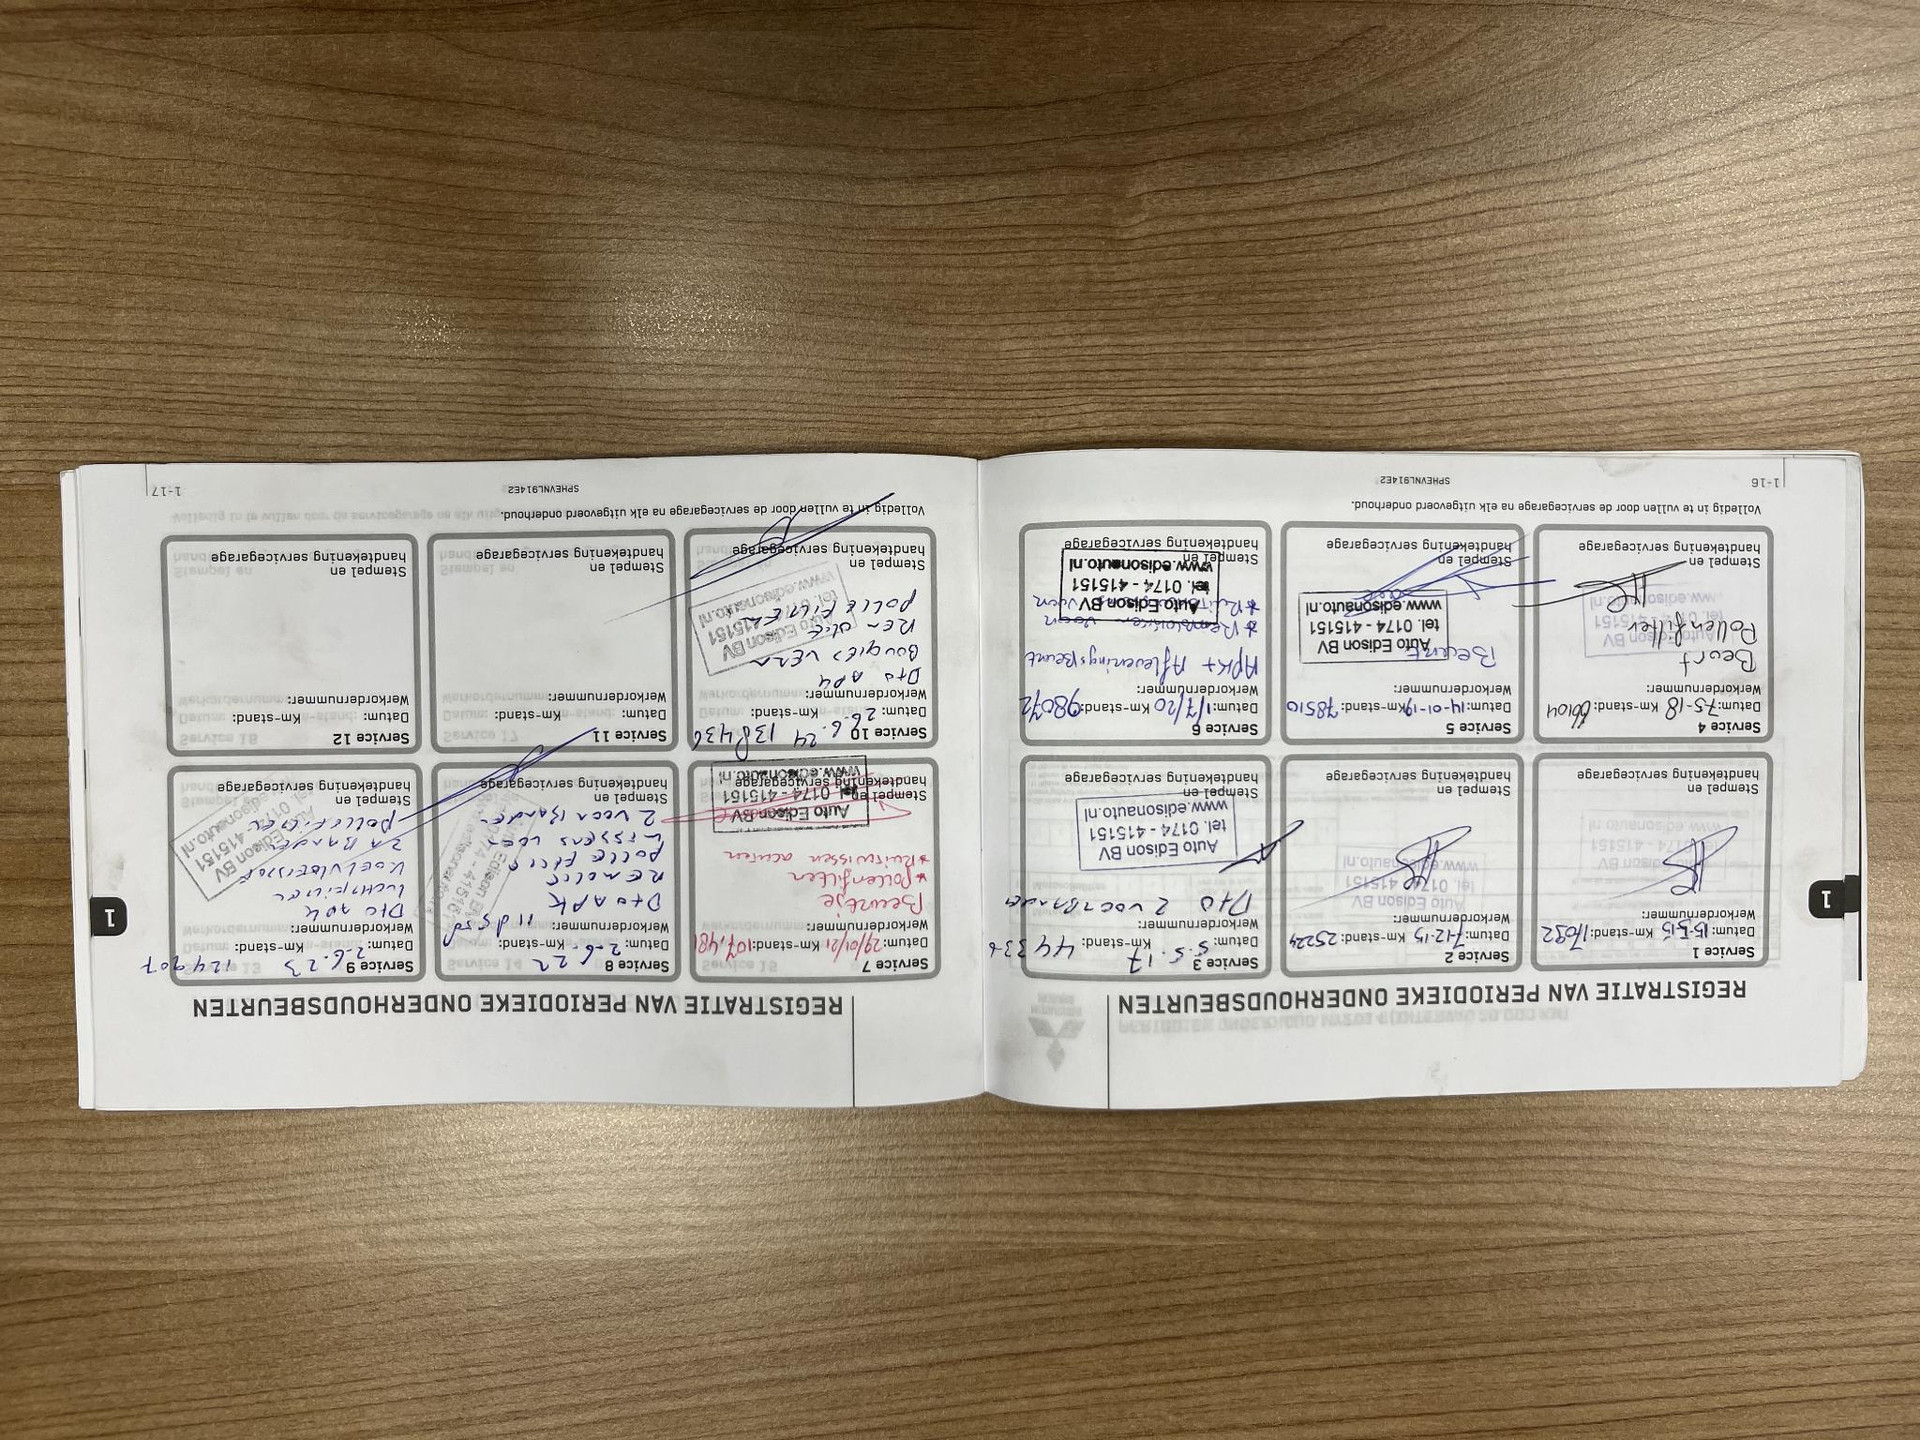 REGISTRATIE VAN PERIODIEKE ONDERHOUDSBEURTEN
1
Service 1
Datum: 15-5-15 Km-stand: 17092
Werkordernummer:
Stempel en
handtekening servicegarage
Service 2
Datum: 7-12-15 Km-stand: 25224
Werkordernummer:
Auto Edison BV
tel. 0174 - 415151
www.edisonauto.nl
Stempel en
handtekening servicegarage
Service 3
Datum: 5.5.17 Km-stand: 44336
Werkordernummer:
D+O 2 VOORBANDEN
Auto Edison BV
tel. 0174 - 415151
www.edisonauto.nl
Stempel en
handtekening servicegarage
Service 4
Datum: 7-5-18 Km-stand: 66104
Werkordernummer:
Beurt
Pollenfilter
Auto Edison BV
tel. 0174 - 415151
www.edisonauto.nl
Stempel en
handtekening servicegarage
Service 5
Datum: 14-01-19 Km-stand: 78510
Werkordernummer:
Beurt
Auto Edison BV
tel. 0174 - 415151
www.edisonauto.nl
Stempel en
handtekening servicegarage
Service 6
Datum: 1/7/20 Km-stand: 98072
Werkordernummer:
APK + AfleveringsBeurt
* Remblokken voor
Auto Edison BV
tel. 0174 - 415151
www.edisonauto.nl
Stempel en
handtekening servicegarage
Volledig in te vullen door de servicegarage na elk uitgevoerd onderhoud.
1-16
SPHEVNL914E2
REGISTRATIE VAN PERIODIEKE ONDERHOUDSBEURTEN
1
Service 7
Datum: 29/01/21 Km-stand: 107.481
Werkordernummer:
Beurtje
* Pollenfilter
* Ruitwisser achter
Auto Edison BV
tel. 0174 - 415151
www.edisonauto.nl
Stempel en
handtekening servicegarage
Service 8
Datum: 2-6-22 Km-stand:
Werkordernummer:
D+O APK
REMOLIE
POLLE FILTER
WISSERS VOOR
2 VOORBANDEN
Edison BV
Stempel en
handtekening servicegarage
Service 9
Datum: 2.6.23 Km-stand: 124907
Werkordernummer:
D+O APK
LUCHTFILTER
KOELVLOEISTOF
2A BANDEN
POLLEFILTER
Edison BV
415151
Stempel en
handtekening servicegarage
Service 10
Datum: 26.6.24 Km-stand: 138436
Werkordernummer:
D+O APK
BOUGIES VERV
REM OLIE
POLLE FILTER
Auto Edison BV
tel. 0174 - 415151
www.edisonauto.nl
Stempel en
handtekening servicegarage
Service 11
Datum: Km-stand:
Werkordernummer:
Stempel en
handtekening servicegarage
Service 12
Datum: Km-stand:
Werkordernummer:
Stempel en
handtekening servicegarage
Volledig in te vullen door de servicegarage na elk uitgevoerd onderhoud.
SPHEVNL914E2
1-17